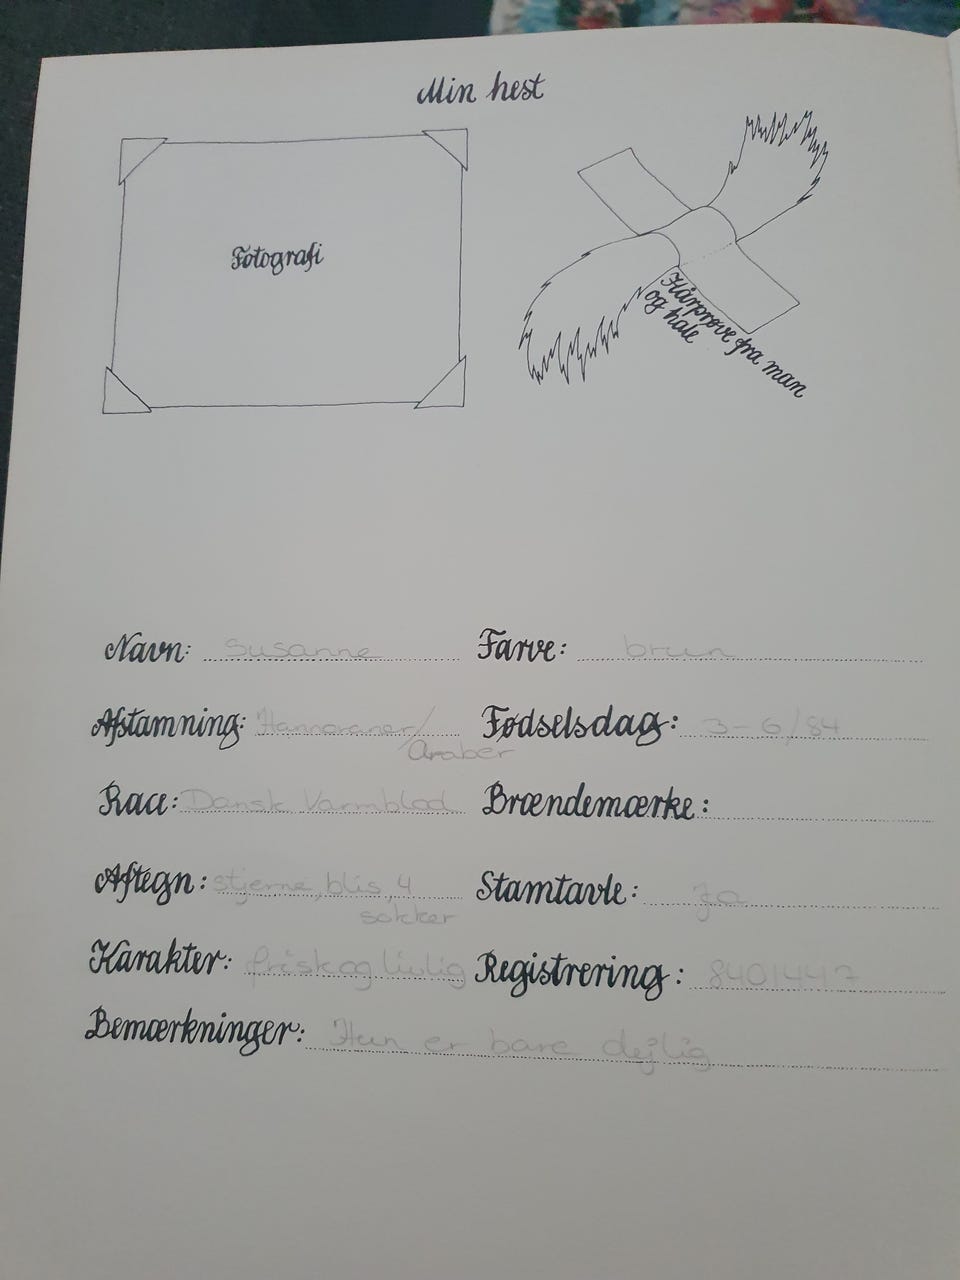 Min hest
Fotografi
Hårprøve fra man
og hale
Navn: Susanne Farve: brun
Afstamning: Hannoraner/ Fødselsdag: 3-6/84
Araber
Race: Dansk Varmblod Brændemærke:
Aftegn: stjerne, blis, 4 Stamtavle: Ja
sokker
Karakter: frisk og livlig Registrering: 8401447
Bemærkninger: Hun er bare dejlig